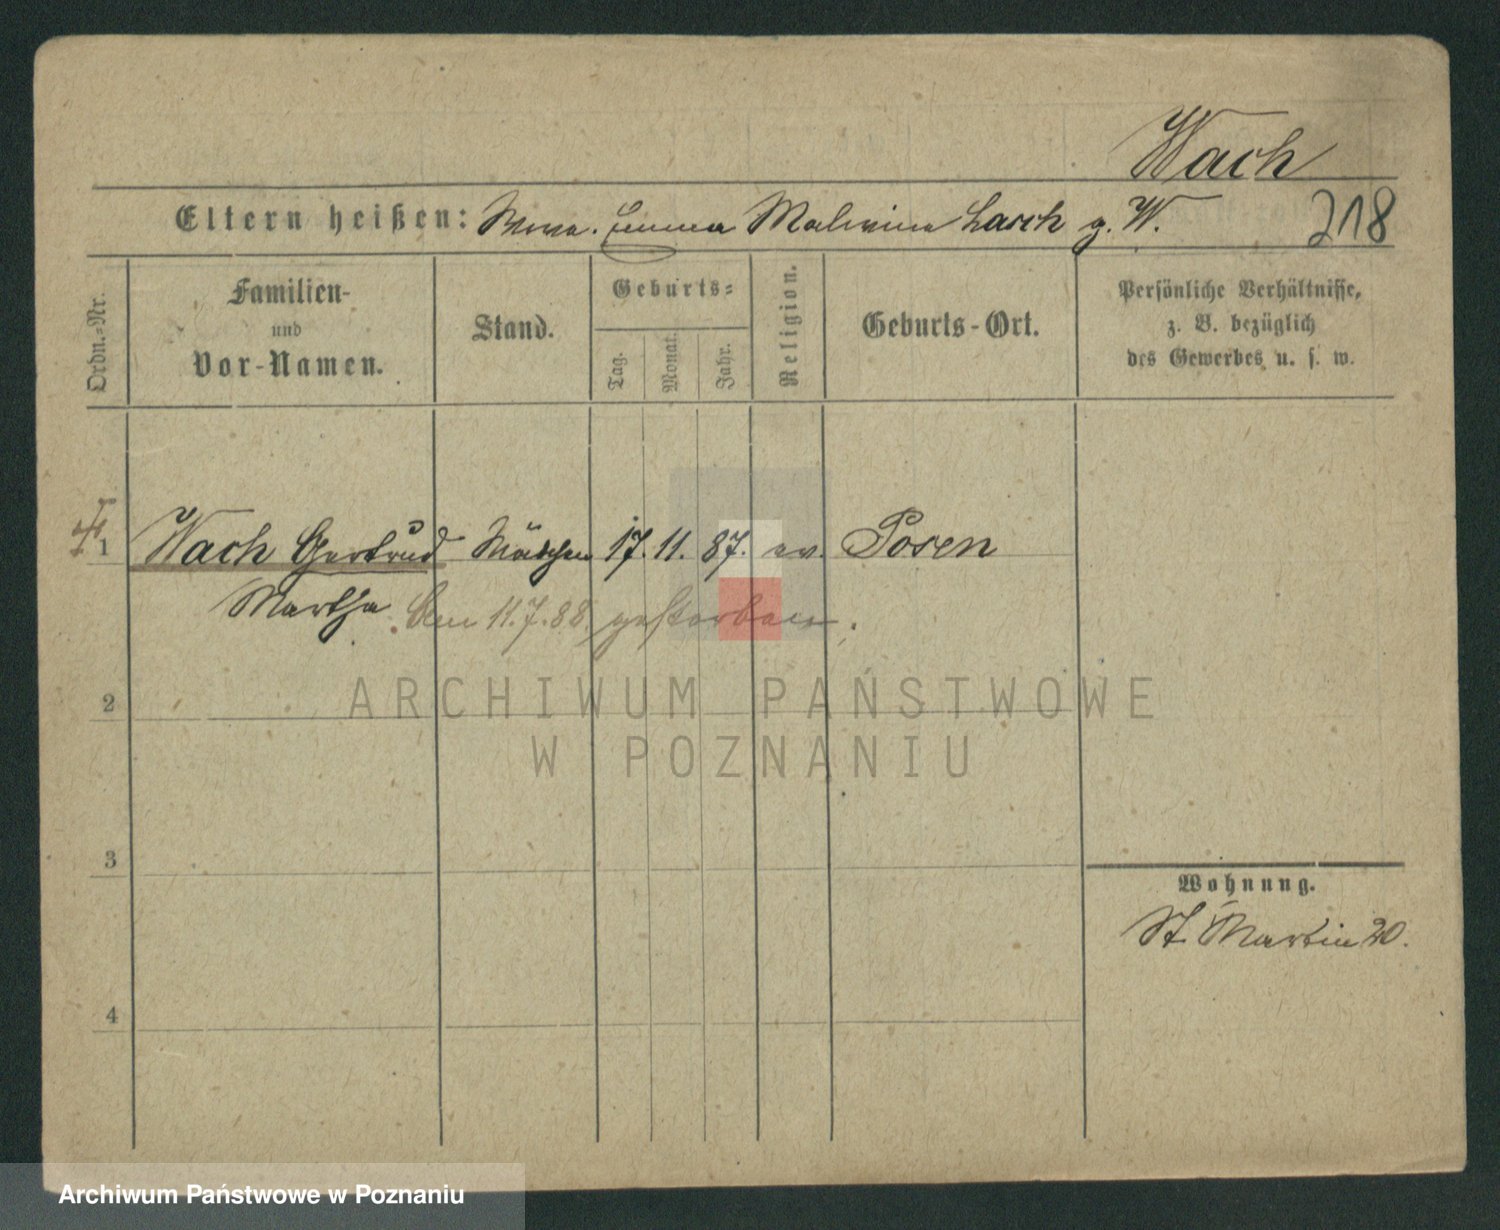 Wach
Eltern heißen: Wwe. Emma Malwine Lasch g. W. 218
Ordn.-Nr.
Familien-
und
Vor-Namen.
Stand.
Geburts-
Tag.
Monat.
Jahr.
Religion.
Geburts-Ort.
Persönliche Verhältnisse,
z. B. bezüglich
des Gewerbes u. s. w.
1 Wach Gertrud Mädchen 17. 11. 87. ev. Posen
Martha Am 11.7.88. gestorben.
2
ARCHIWUM PAŃSTWOWE
W POZNANIU
3
Wohnung.
St. Martin 20.
4
Archiwum Państwowe w Poznaniu